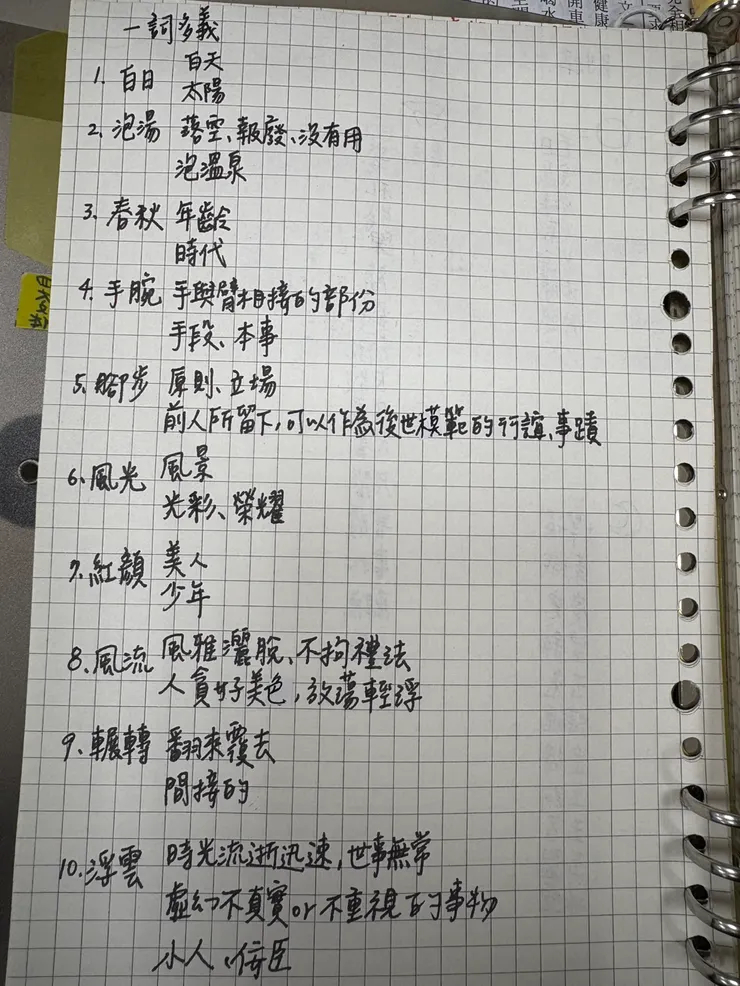 一詞多義
1. 白日 白天
太陽
2. 泡湯 落空、報廢、沒有用
泡溫泉
3. 春秋 年齡
時代
4. 手腕 手與臂相接的部份
手段、本事
5. 腳步 原則、立場
前人所留下,可以作為後世模範的行誼、事蹟
6. 風光 風景
光彩、榮耀
7. 紅顏 美人
少年
8. 風流 風雅灑脫、不拘禮法
人貪好美色,放蕩輕浮
9. 輾轉 翻來覆去
間接的
10. 浮雲 時光流逝迅速,世事無常
虛幻不真實or不重視的事物
小人、佞臣